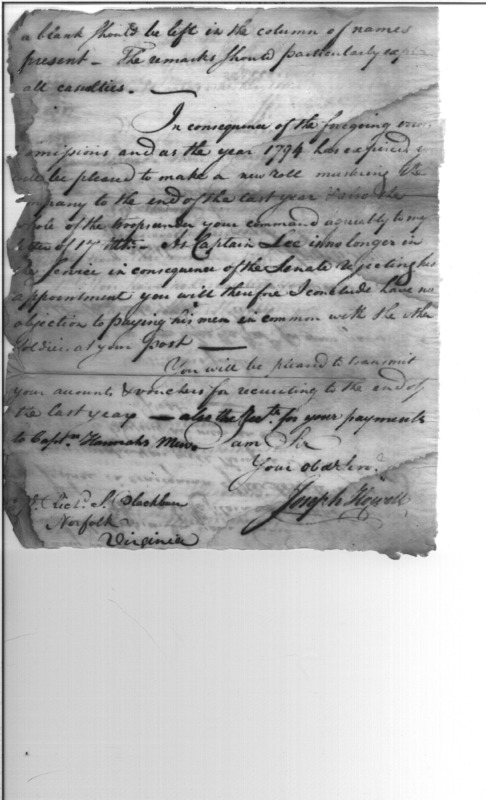 a blank should be left in the column of names
present - The remarks should particularly
all casulties. -
In consequence of the foregoing
omissions and as the year 1794 has expired
be pleased to make a new roll mustering the
company to the end of the last year & also the
whole of the troops under your command agreeably to my
letter of 17 - As Captain Lee is no longer in
the Service in consequence of the Senate rejecting his
appointment you will therefore I conclude have no
objection to paying his men in common with the other
soldiers at your post -
You will be pleased to transmit
your accounts & vouchers for recruiting to the end of
the last year - also the for your payments
to Captn Hannahs Men. I am Sir
Your Obd Serv.
Joseph Howell
S. Blackburn
Norfolk
Virginia